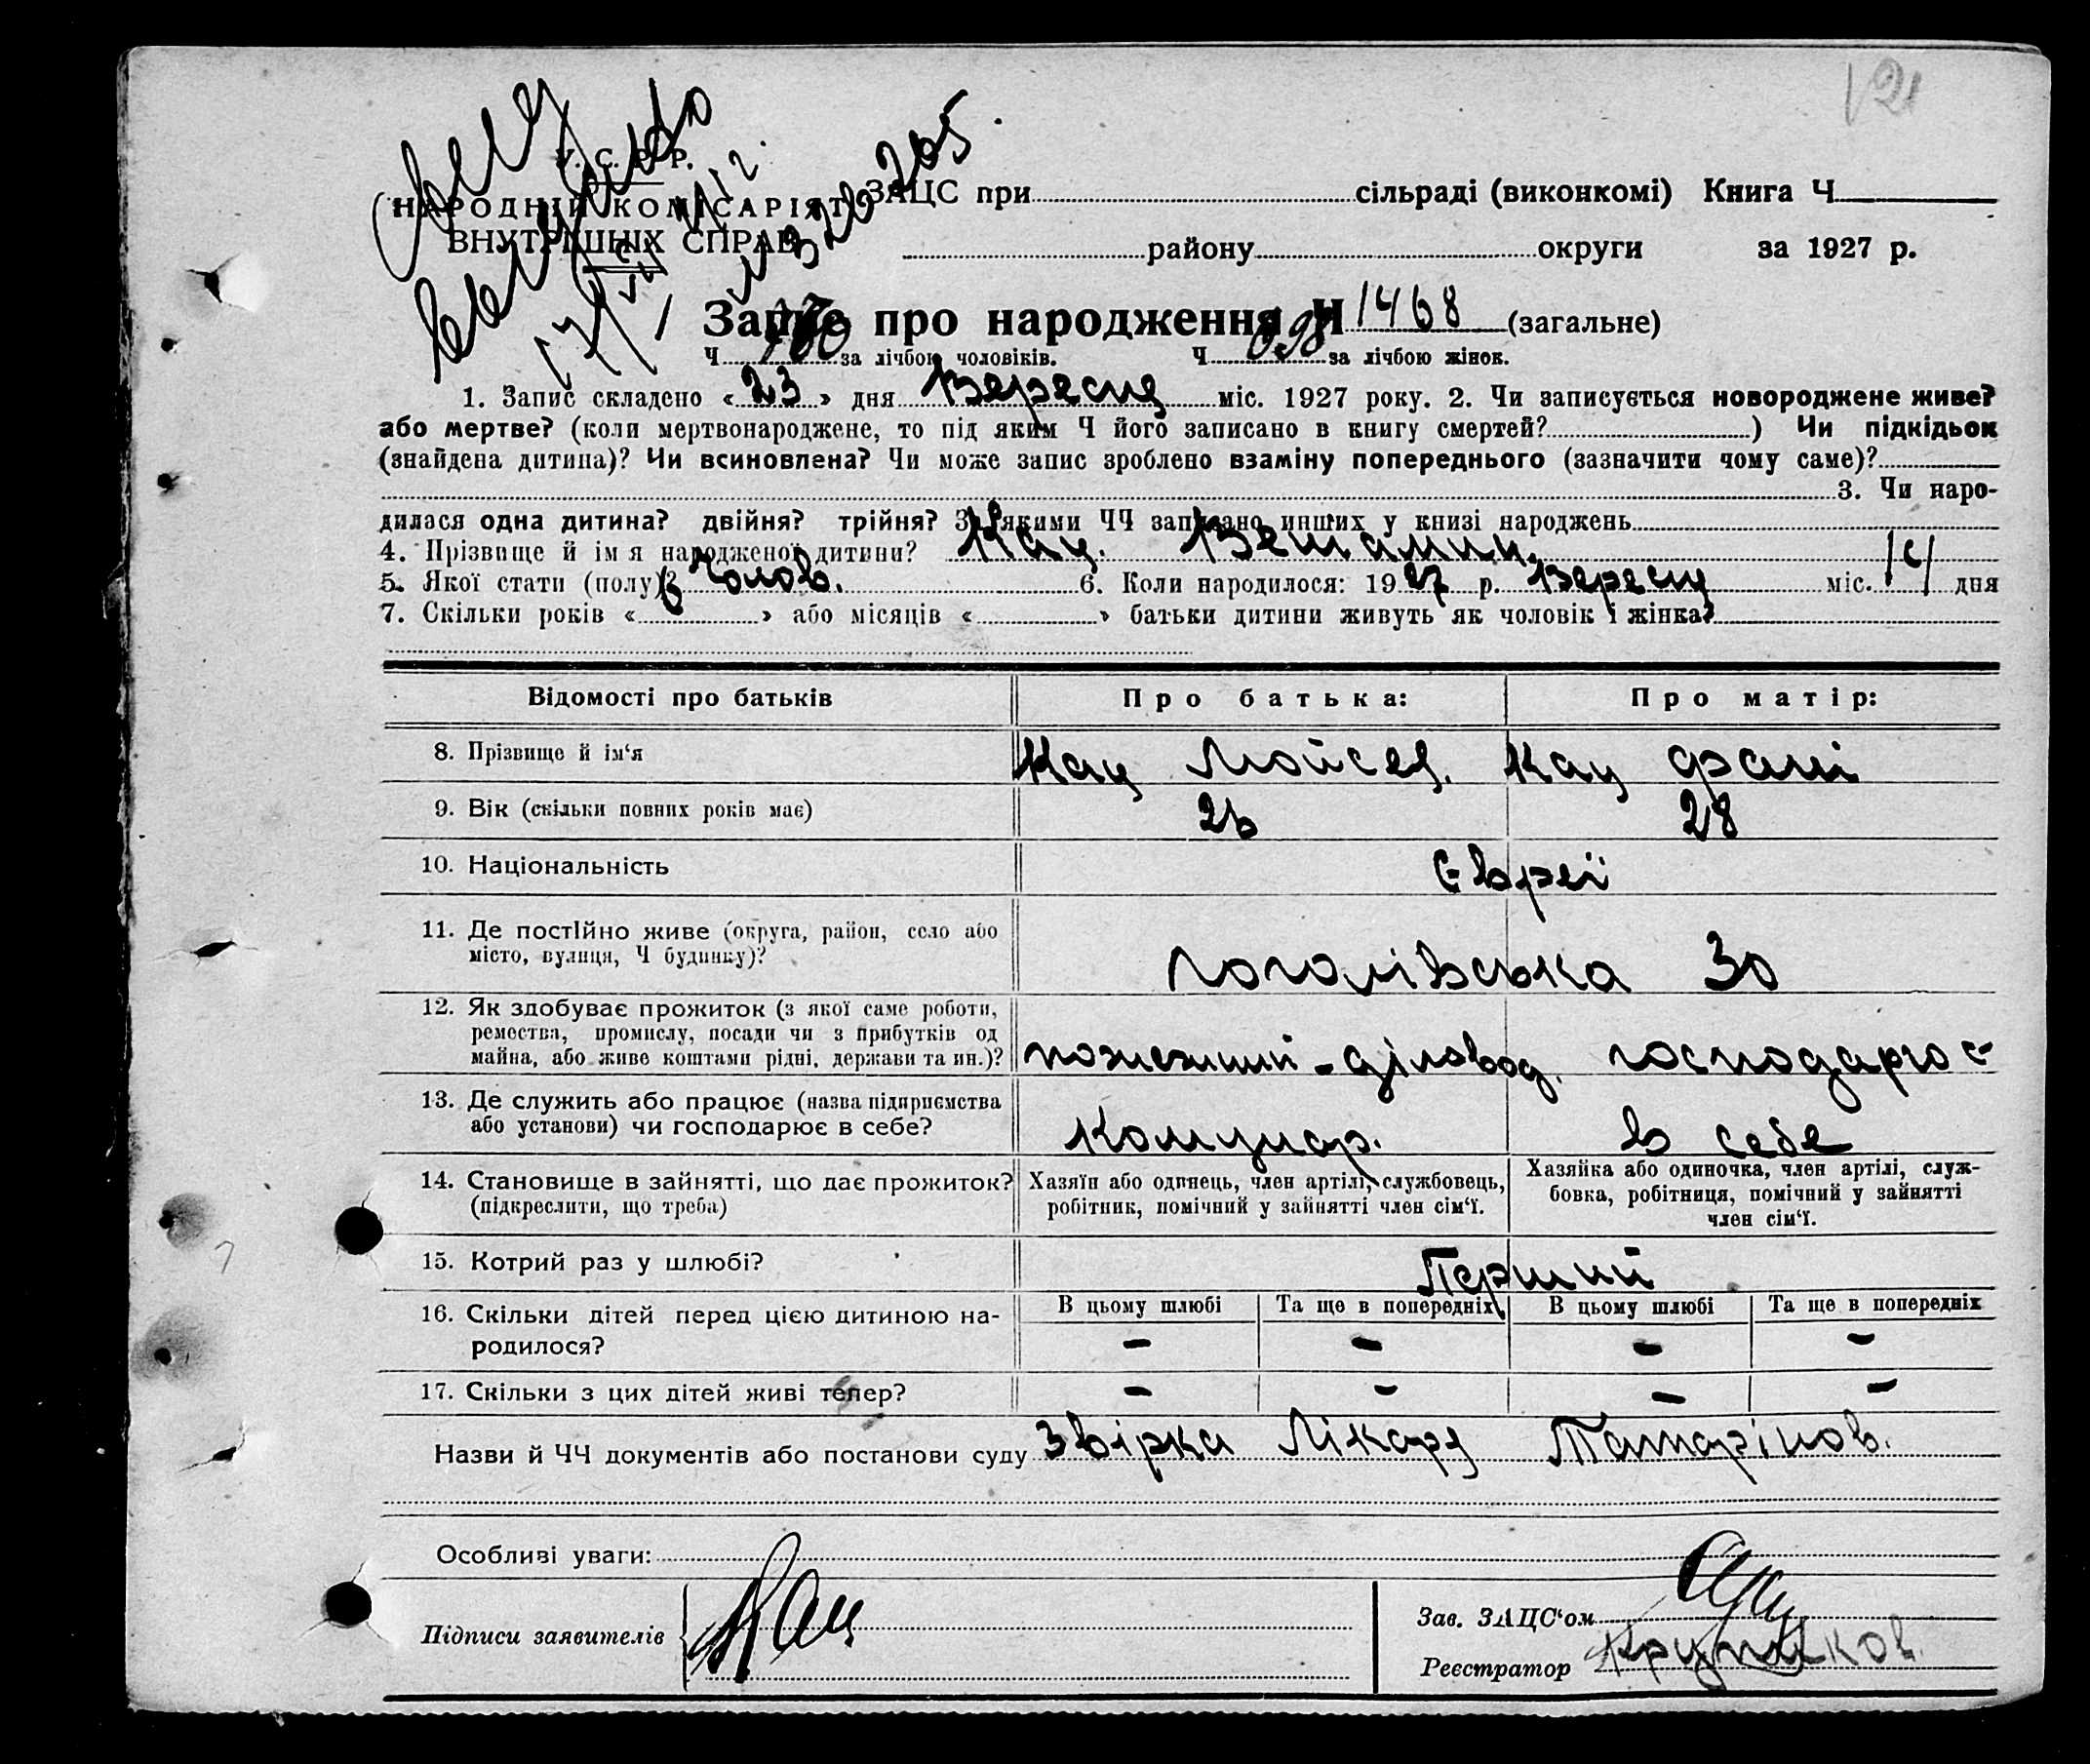 121
У. С. Р. Р.
НАРОДНІЙ КОМІСАРІЯТ
ВНУТРІШНІХ СПРАВ
ЗАЦС при сільраді (виконкомі) Книга Ч
району округи за 1927 р.
Запис про народження Ч 1468 (загальне)
Ч за лічбою чоловіків. Ч 698 за лічбою жінок.
1. Запис складено «23» дня Вересня міс. 1927 року. 2. Чи записується новороджене живе?
або мертве? (коли мертвонароджене, то під яким Ч його записано в книгу смертей? ) Чи підкідьок
(знайдена дитина)? Чи всиновлена? Чи може запис зроблено взаміну попереднього (зазначити чому саме)?
3. Чи наро-
дилася одна дитина? двійня? трійня? За якими ЧЧ записано инших у книзі народжень
4. Прізвище й ім я народженої дитини? Кац
5. Якої стати (полу)? Чолов. 6. Коли народилося: 1927 р. Вересня міс. 14 дня
7. Скільки років « » або місяців « » батьки дитини живуть як чоловік і жінка?
Відомості про батьків Про батька: Про матір:
8. Прізвище й ім'я Кац Мойсей. Кац Фані
9. Вік (скільки повних років має) 26 28
10. Національність Євреї
11. Де постійно живе (округа, район, село або
місто, вулиця, Ч будинку)? Гоголівська 30
12. Як здобуває прожиток (з якої саме роботи,
ремества, промислу, посади чи з прибутків од
майна, або живе коштами рідні, держави та ин.)? діловод. господарює
13. Де служить або працює (назва підприємства
або установи) чи господарює в себе? в себе
14. Становище в зайнятті, що дає прожиток?
(підкреслити, що треба)
Хазяїн або одинець, член артілі, службовець,
робітник, помічний у зайнятті член сім'ї.
Хазяйка або одиночка, член артілі, служ-
бовка, робітниця, помічний у зайнятті
член сім'ї.
15. Котрий раз у шлюбі? Перший
16. Скільки дітей перед цією дитиною на-
родилося?
В цьому шлюбі Та ще в попередніх В цьому шлюбі Та ще в попередніх
– – – –
17. Скільки з цих дітей живі тепер? – – – –
Назви й ЧЧ документів або постанови суду Звірка Лікаря Татарінов.
Особливі уваги:
Підписи заявителів Кац
Зав. ЗАЦС'ом
Реєстратор